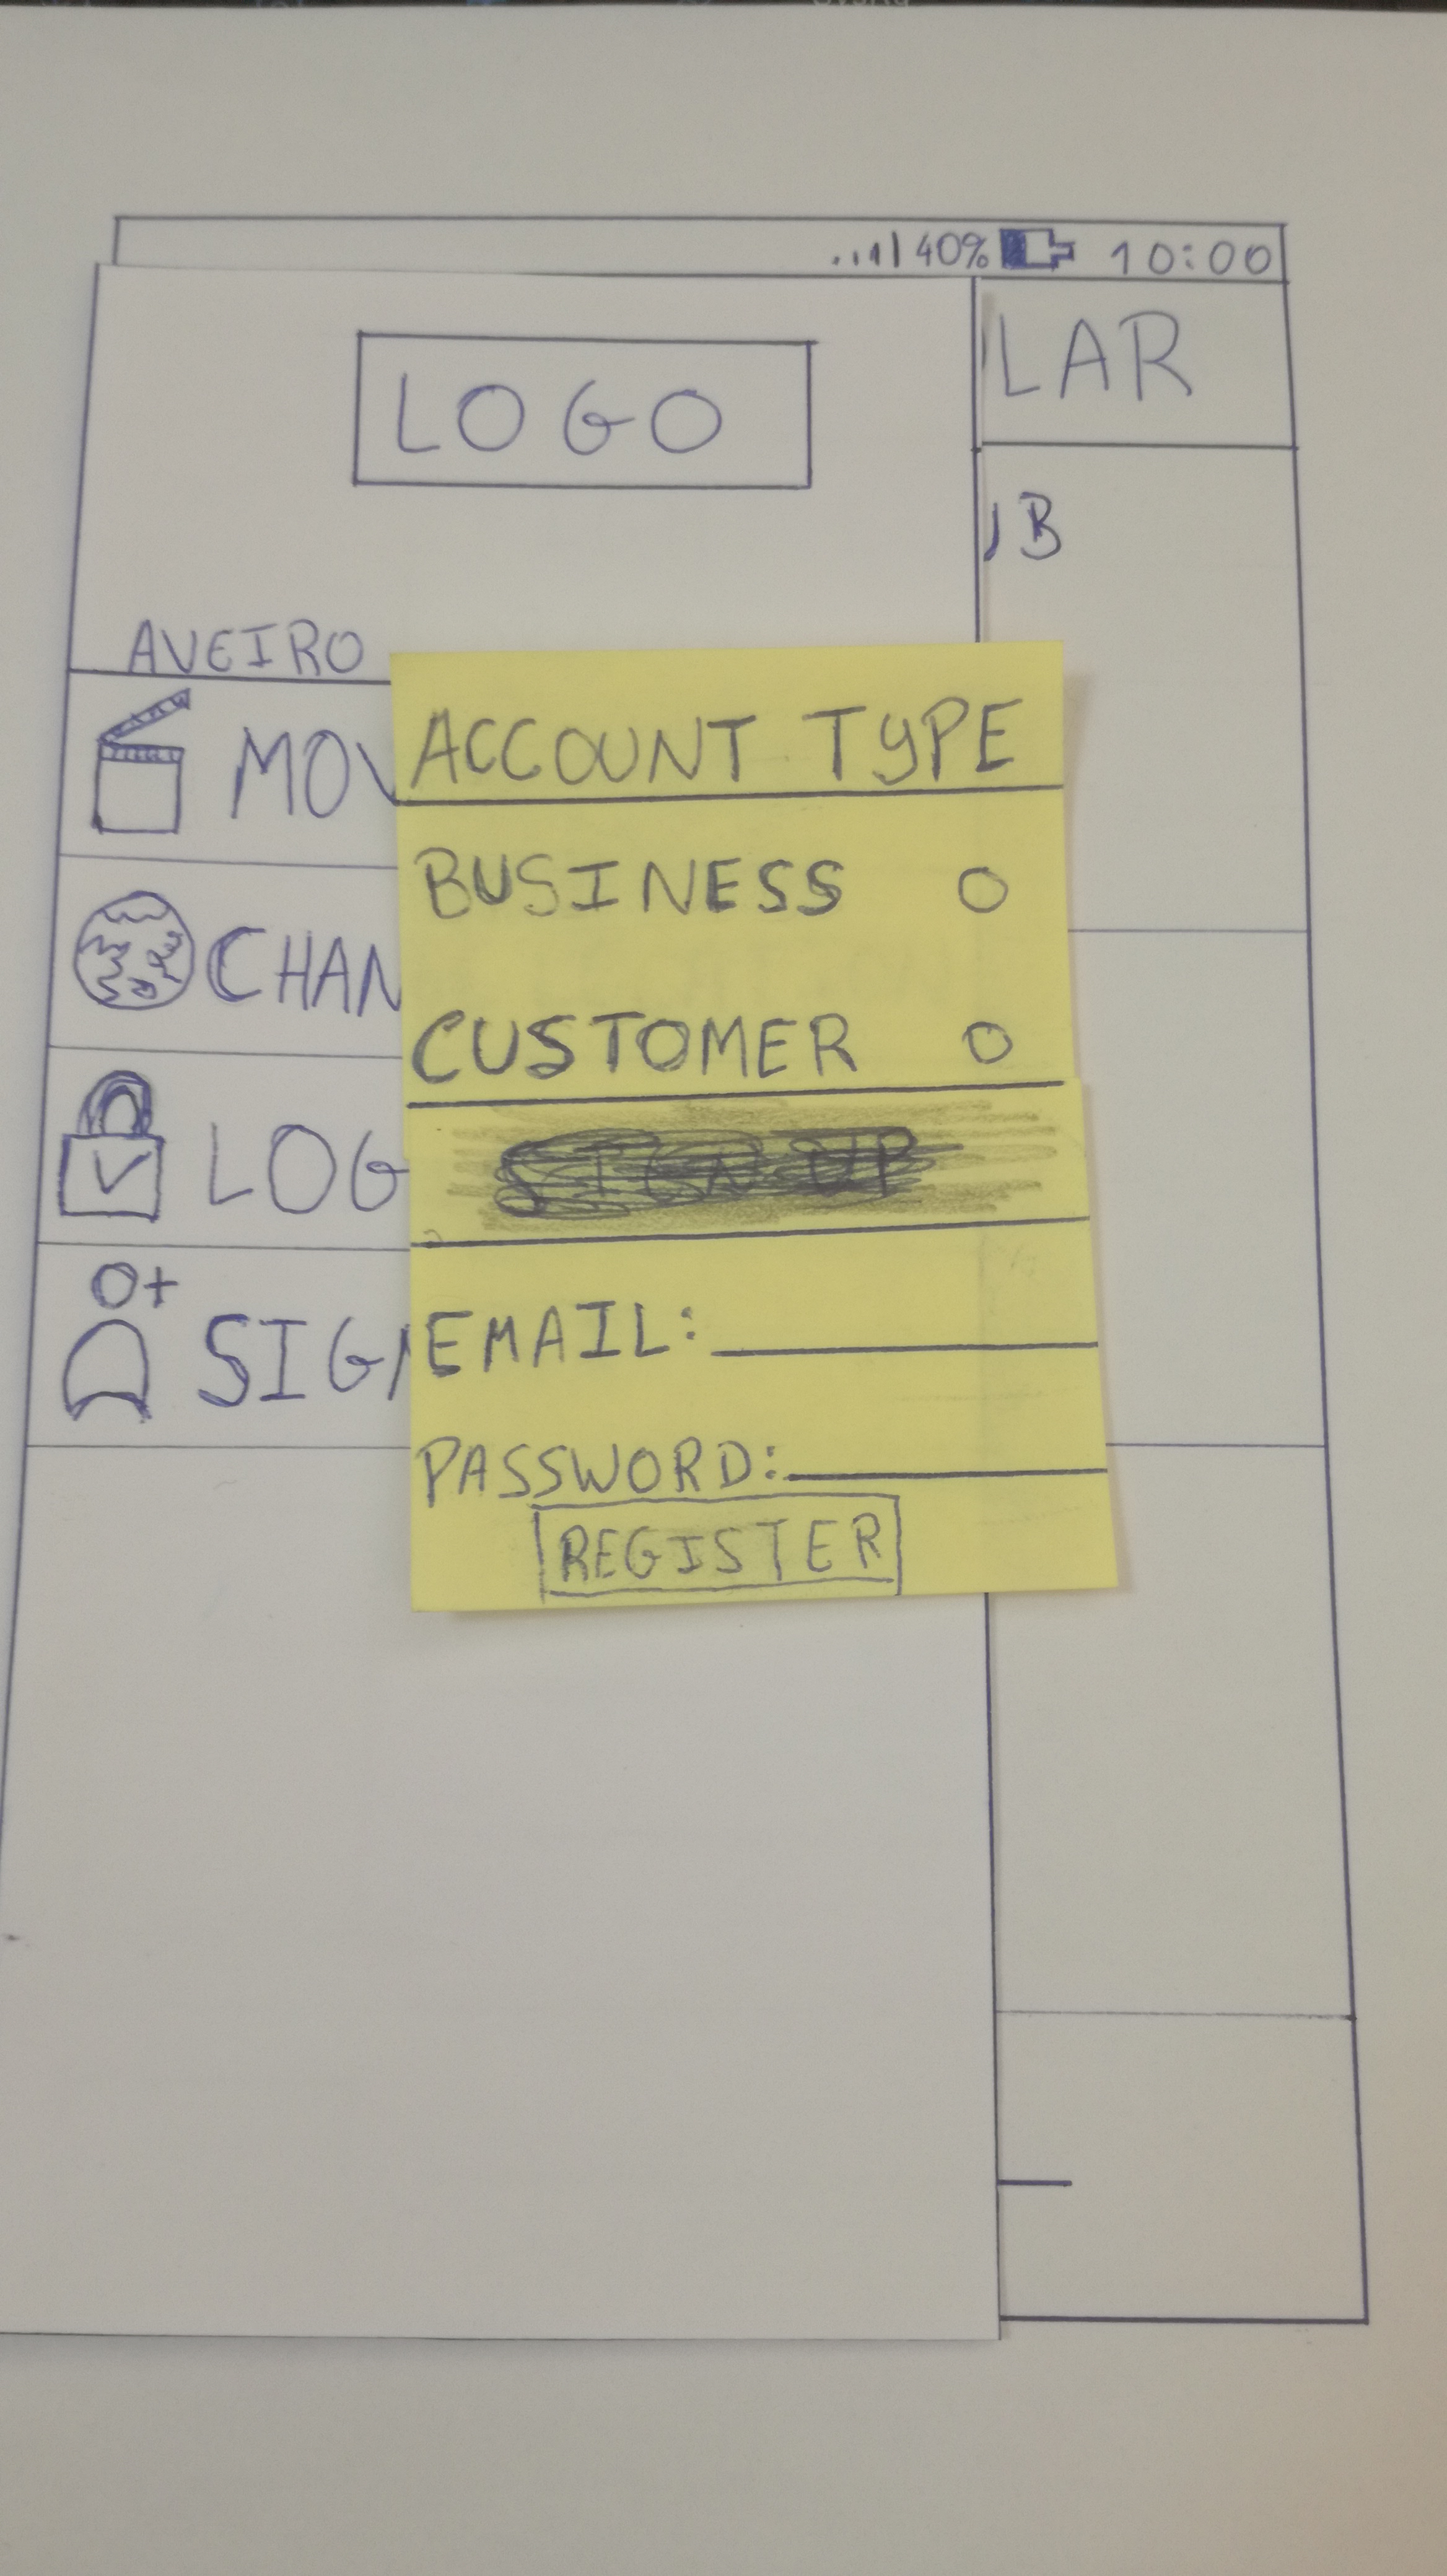 40% 10:00
LOGO
LAR
B
AVEIRO
MOV
CHAN
LOG
SIGN
ACCOUNT TYPE
BUSINESS
CUSTOMER
SIGN UP
EMAIL:
PASSWORD:
REGISTER